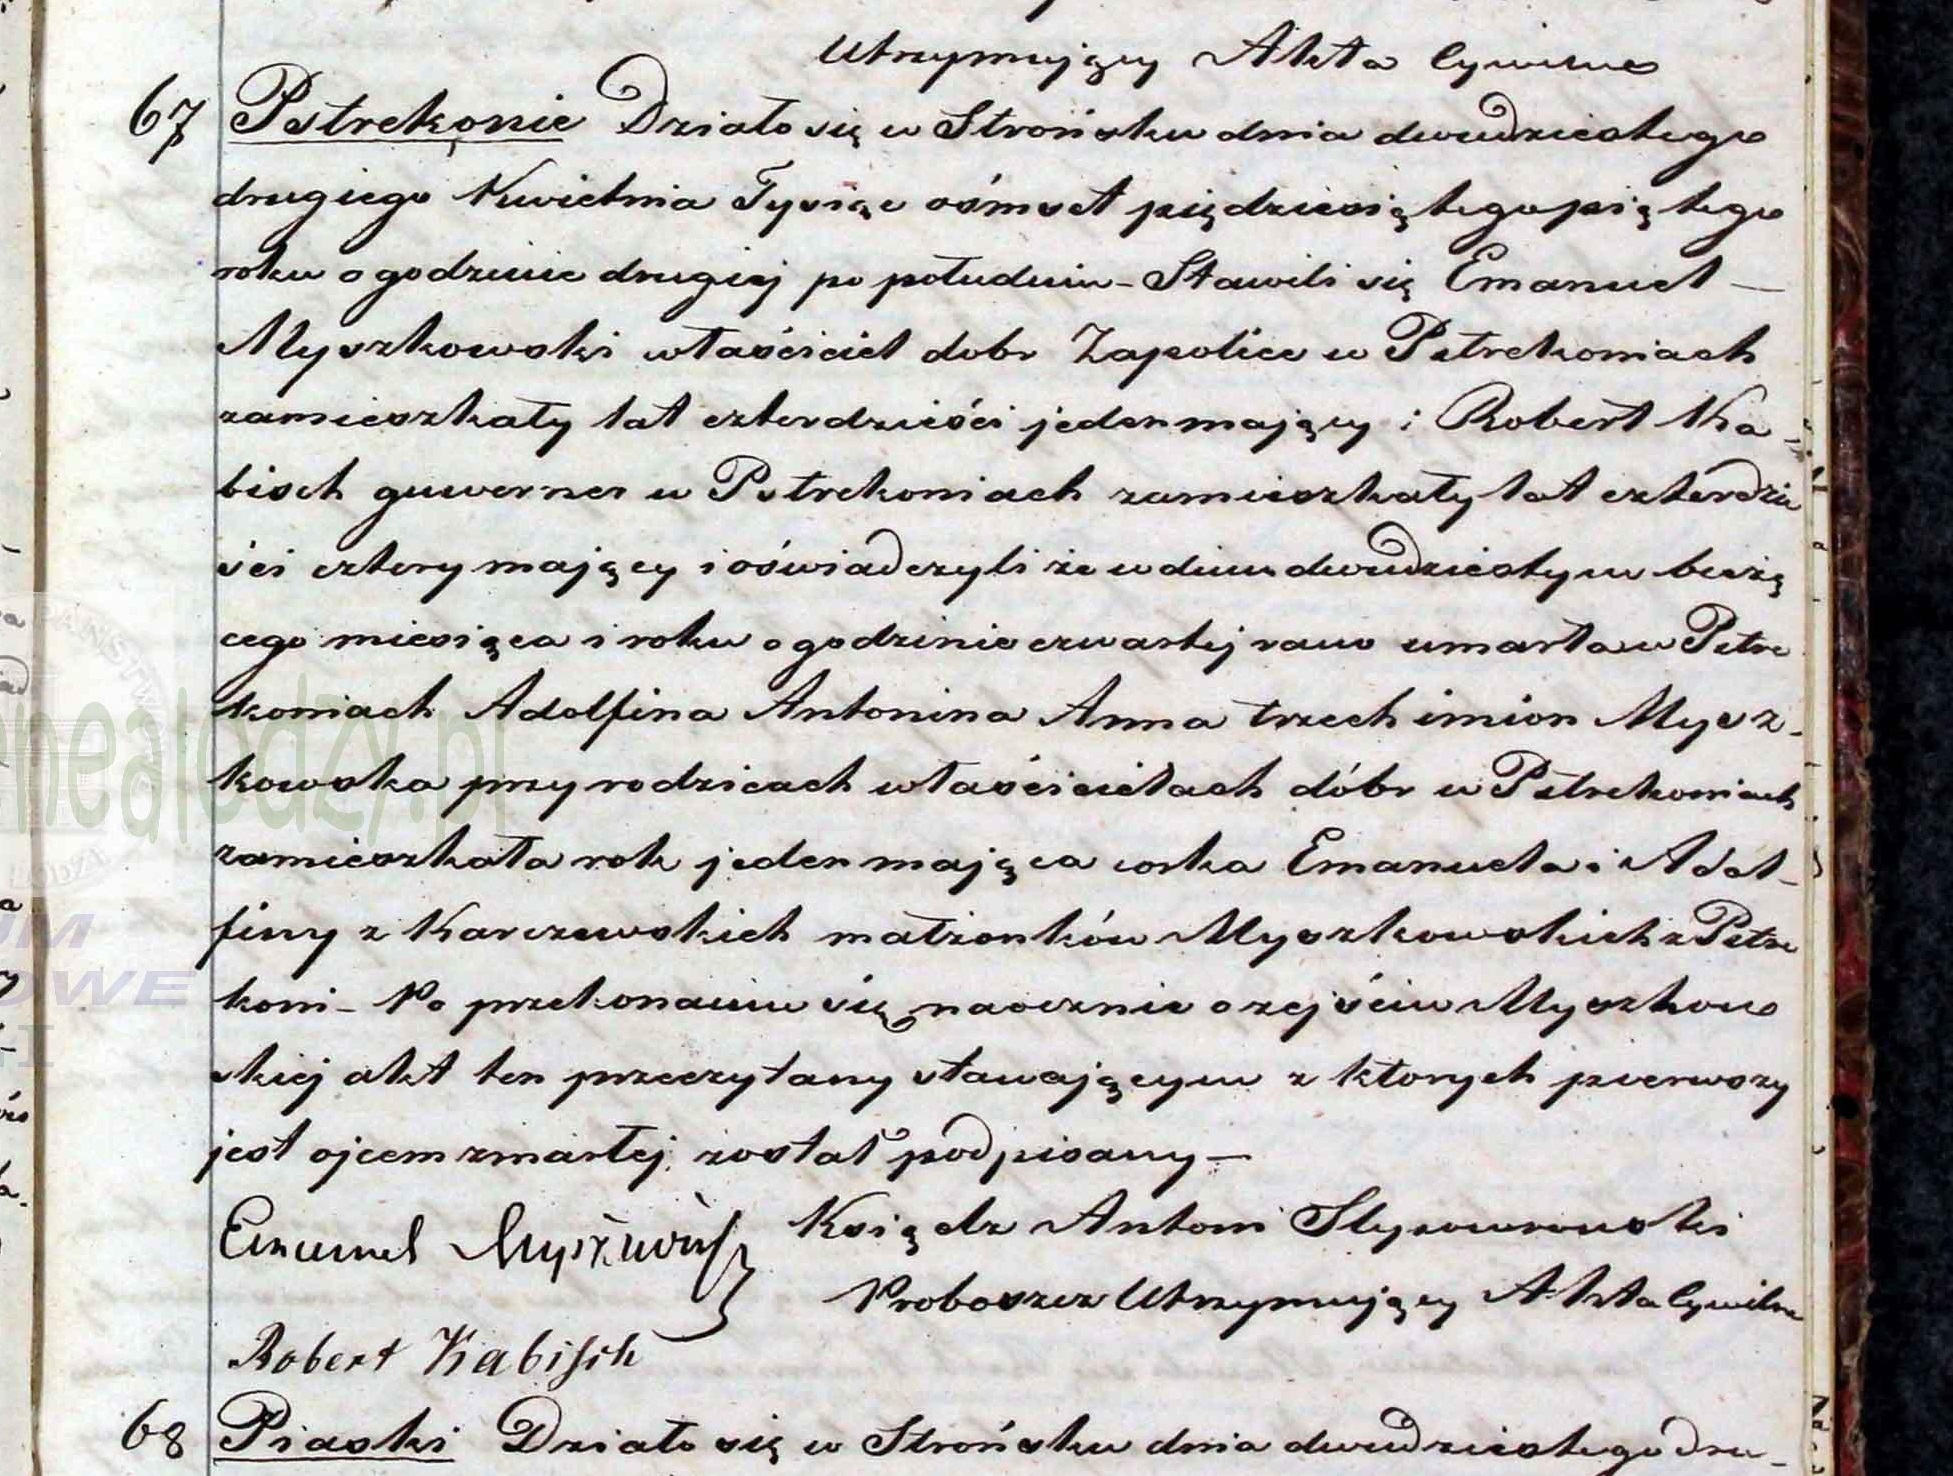 Utrzymujący Akta Cywilne
67 Pstrekonie Działo się w Strońsku dnia dwudziestego
drugiego Kwietnia Tysiąc ośmset pięćdziesiątego piątego
roku o godzinie drugiej po południu – Stawili się Emanuel –
Myszkowski właściciel dobr Zapolice w Pstrekoniach
zamieszkały lat czterdzieści jeden mający i Robert Ka-
bisch guwerner w Pstrekoniach zamieszkały lat czterdzie
ści cztery mający i oświadczyli że w dniu dwudziestym bieżą
cego miesiąca i roku o godzinie czwartej rano umarła w Pstre
koniach Adolfina Antonina Anna trzech imion Mysz-
kowska przy rodzicach właścicielach dóbr w Pstrekoniach
zamieszkała rok jeden mająca corka Emanuela i Adol-
finy z Karczewskich małżonków Myszkowskich z Pstre
koni – Po przekonaniu się naocznie o zejściu Myszkow
skiej akt ten przeczytany stawającym z ktorych pierwszy
jest ojcem zmarłej został podpisany –
Emanuel Myszkowski Ksiądz Antoni
Proboszcz Utrzymujący Akta Cywilne
Robert Kabisch
68 Piaski Działo się w Strońsku dnia dwudziestego dru-
nealodzy.pl